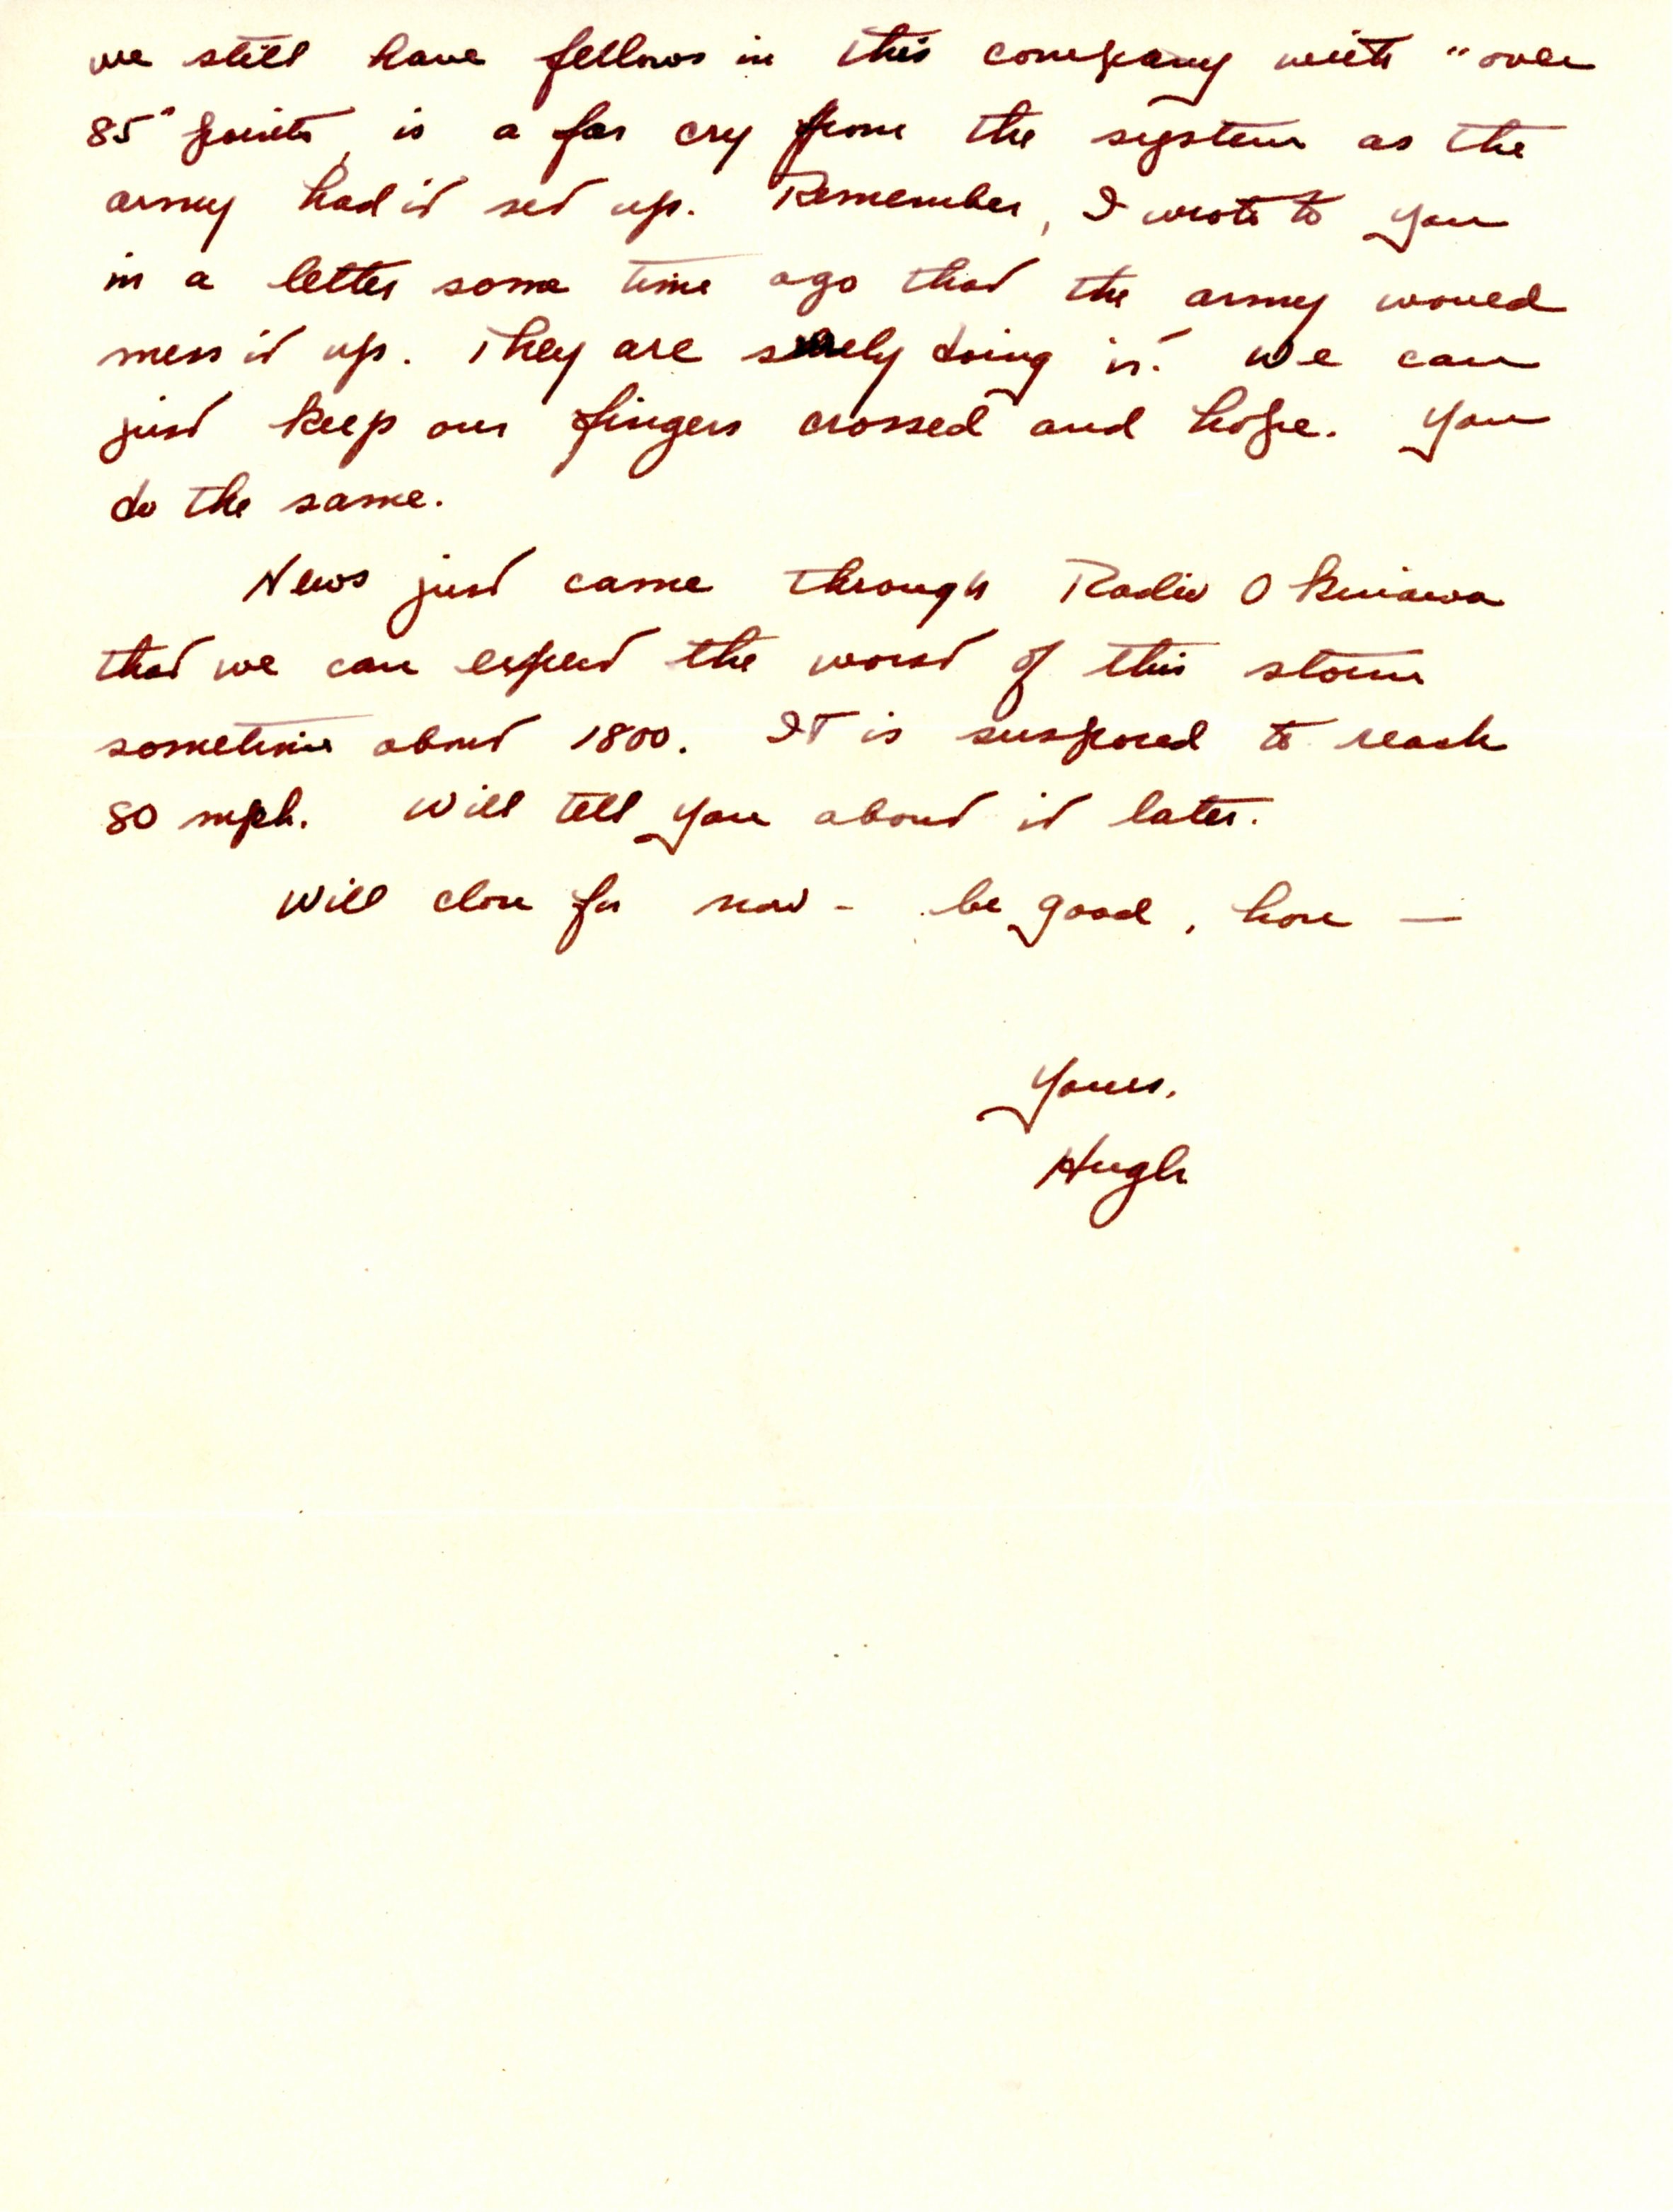 we still have fellows in this company with "over
85" points, is a far cry from the system as the
army had it set up. Remember, I wrote to you
in a letter some time ago that the army would
mess it up. They are surely doing it. We can
just keep our fingers crossed and hope. You
do the same.
News just came through Radio Okinawa
that we can expect the worst of this storm
sometime about 1800. It is supposed to reach
80 mph. Will tell you about it later.
Will close for now - be good, hon —
Yours,
Hugh